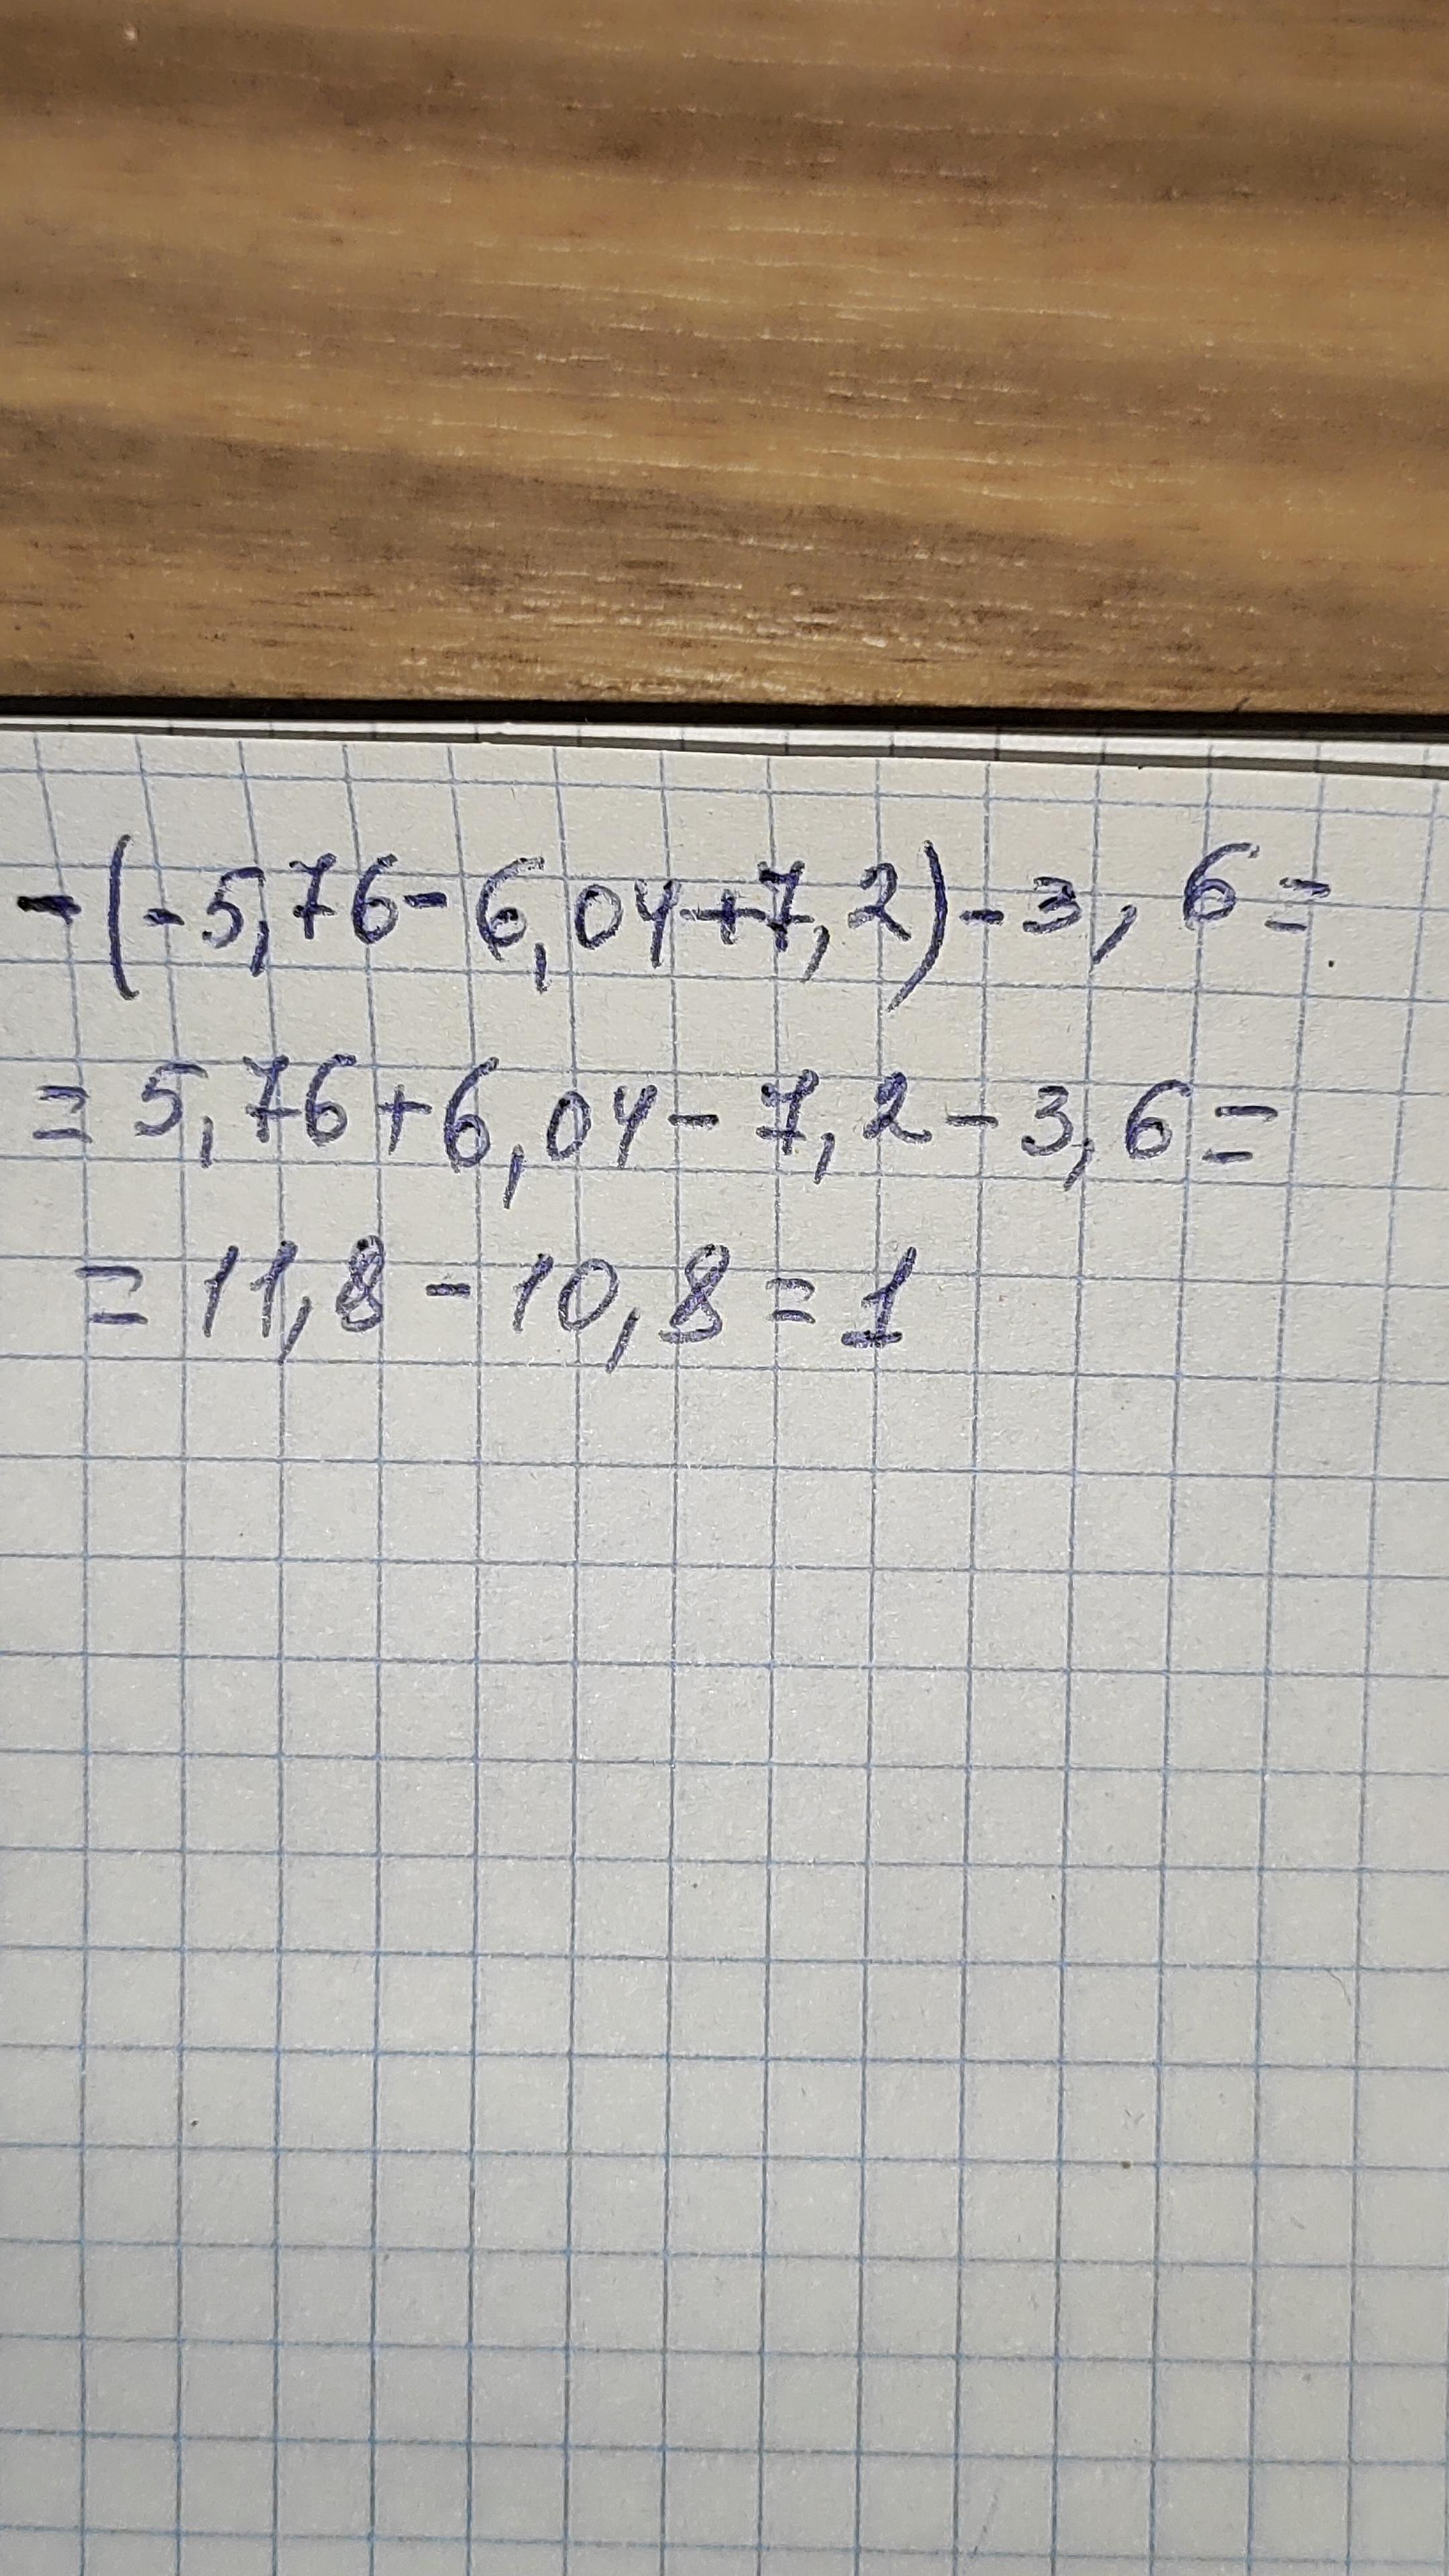 -(-5,76-6,04+7,2)-3,6=
=5,76+6,04-7,2-3,6=
=11,8-10,8=1